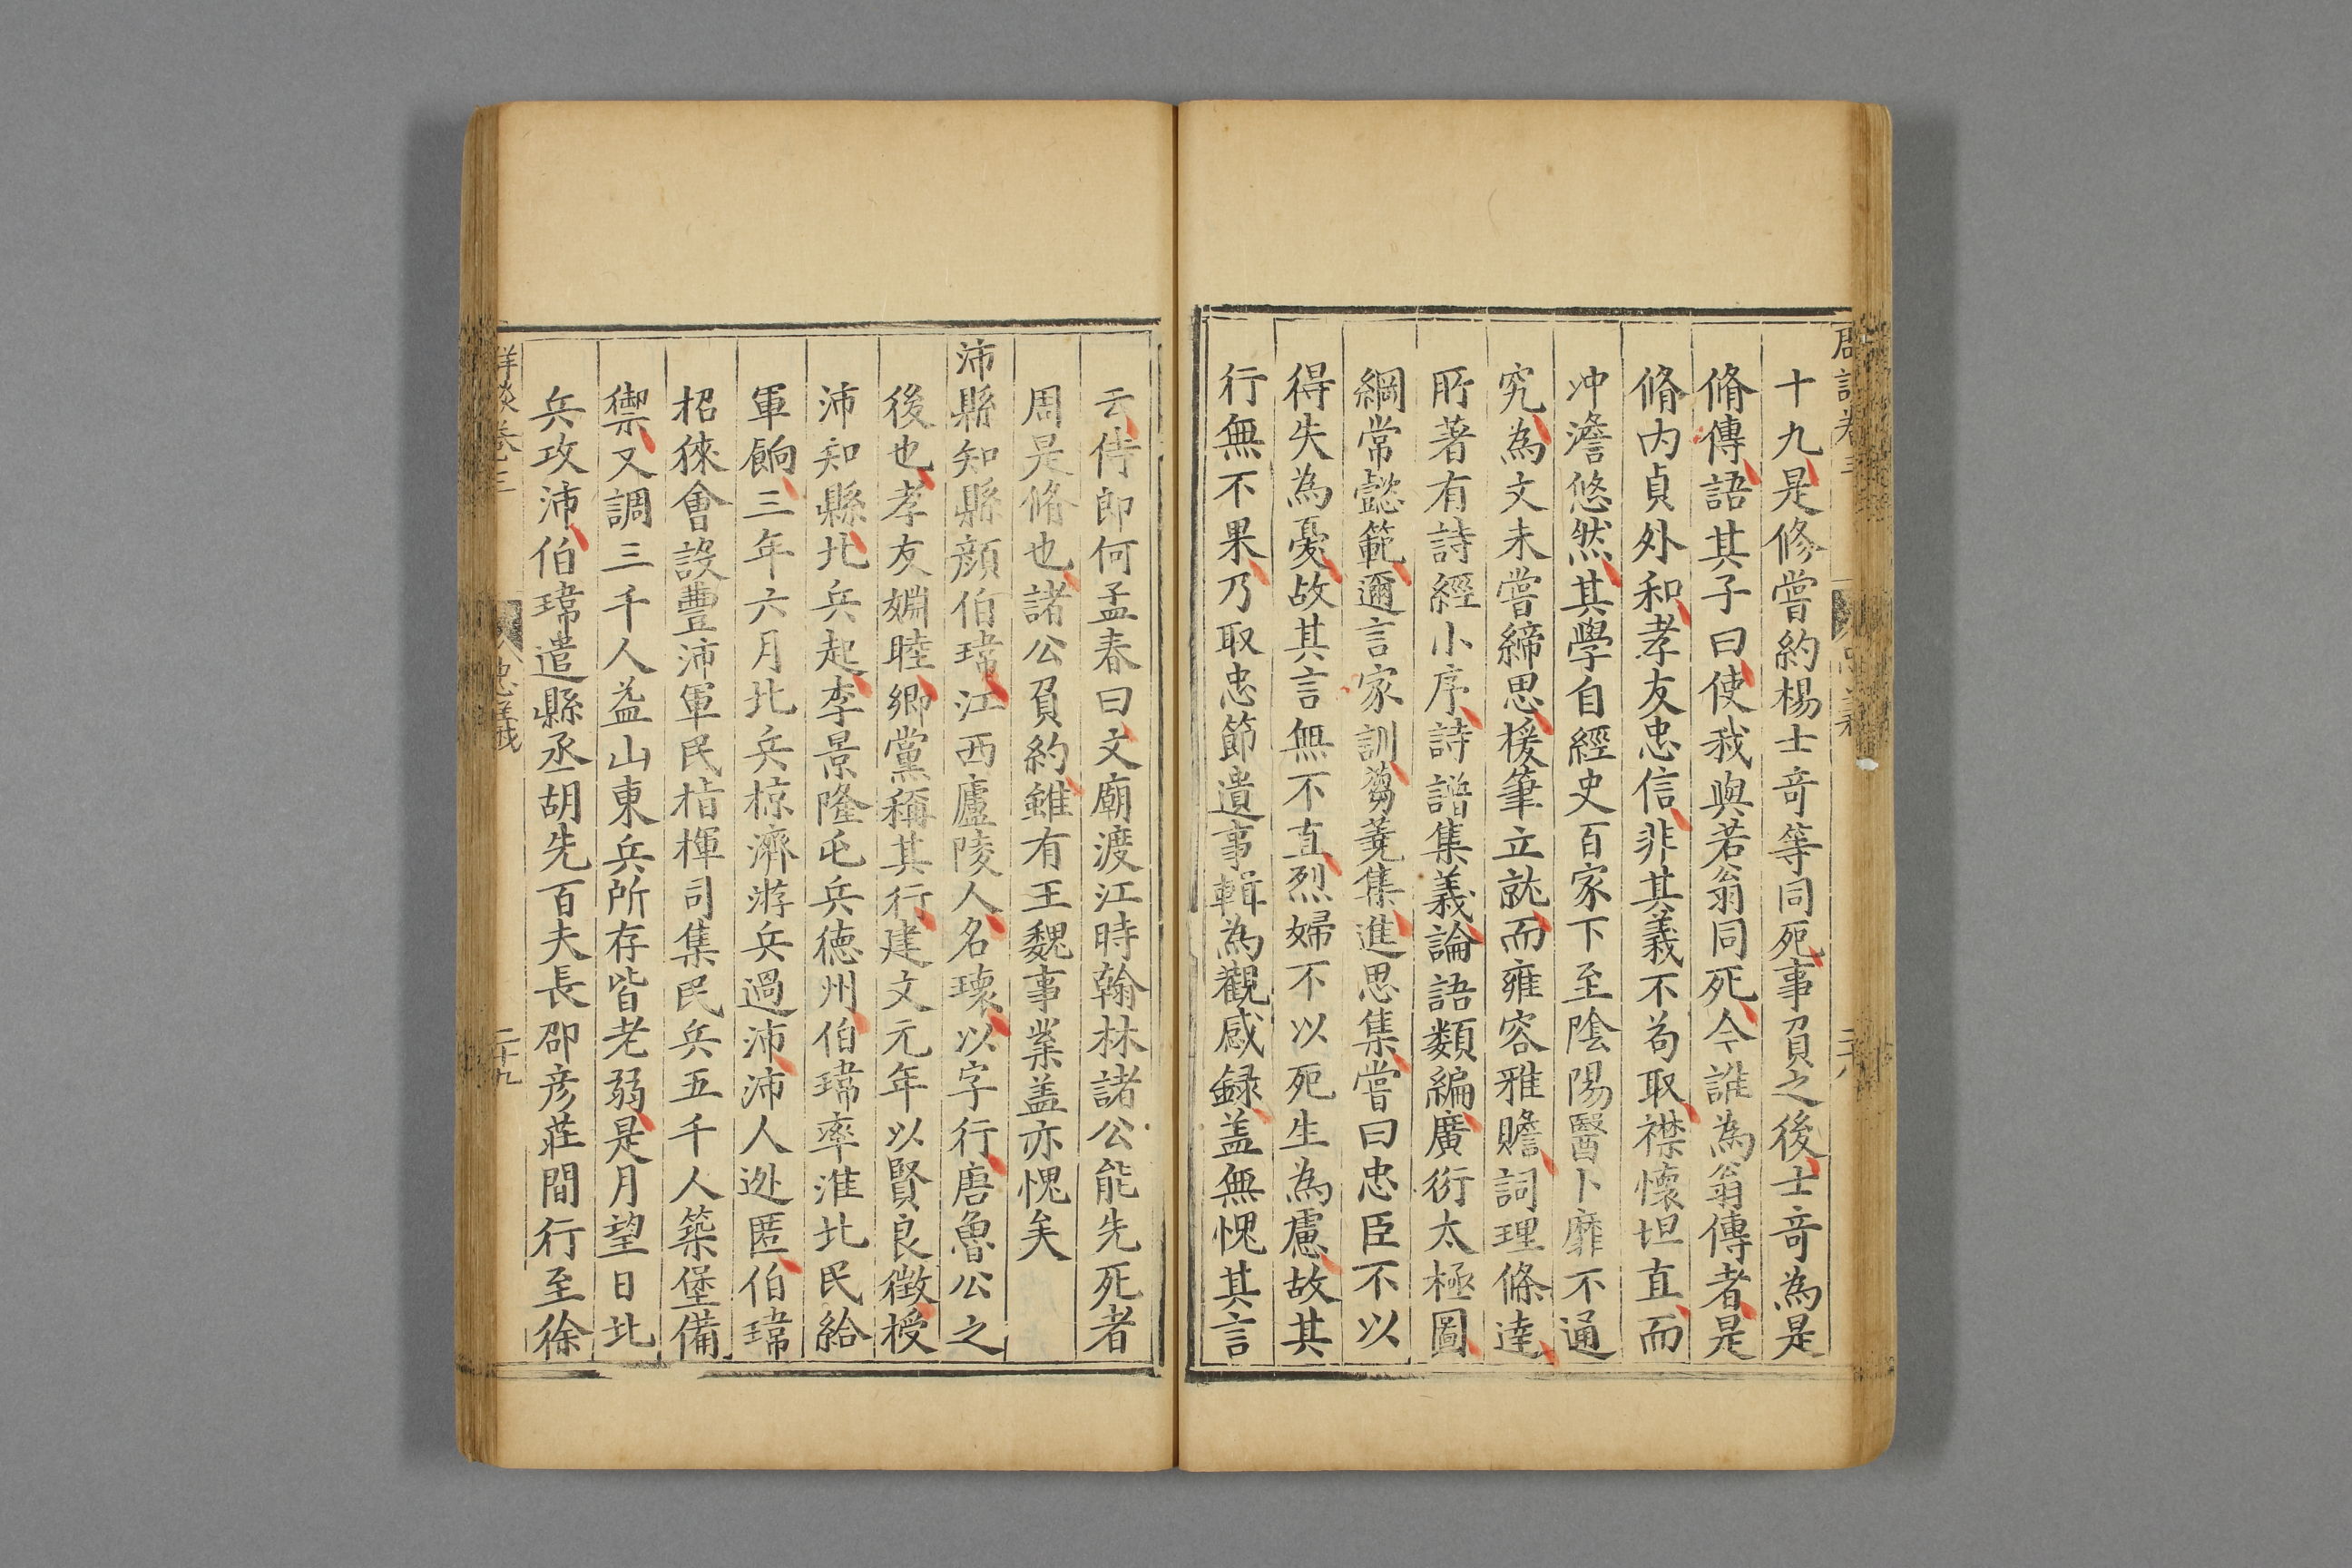 十九是修嘗約楊士竒等同死事負之後士竒為是
脩傳語其子曰使我與若翁同死今誰為翁傳者是
脩内貞外和孝友忠信非其義不茍取襟懷坦直而
冲澹悠然其學自經史百家下至陰陽醫卜靡不通
究為文未嘗締思援筆立就而雍容雅贍詞理條達
所著有詩經小序詩譜集義論語類編廣衍太極圖
綱常懿範邇言家訓蒭蕘集進思集嘗曰忠臣不以
得失為憂故其言無不直烈婦不以死生為慮故其
行無不果乃取忠節遺事輯為觀感録盖無愧其言
云侍郎何孟春曰文廟渡江時翰林諸公能先死者
周是脩也諸公負約雖有王魏事業盖亦愧矣
沛縣知縣顔伯瑋江西廬陵人名瓌以字行唐魯公之
後也孝友婣睦鄉黨稱其行建文元年以賢良徴授
沛知縣北兵起李景隆屯兵德州伯瑋率淮北民給
軍餉三年六月北兵掠濟游兵過沛沛人迯匿伯瑋
招徠會設豐沛軍民指揮司集民兵五千人築堡備
禦又調三千人益山東兵所存皆老弱是月望日北
兵攻沛伯瑋遣縣丞胡先百夫長邵彦莊間行至徐
卷三
忠義
二十九